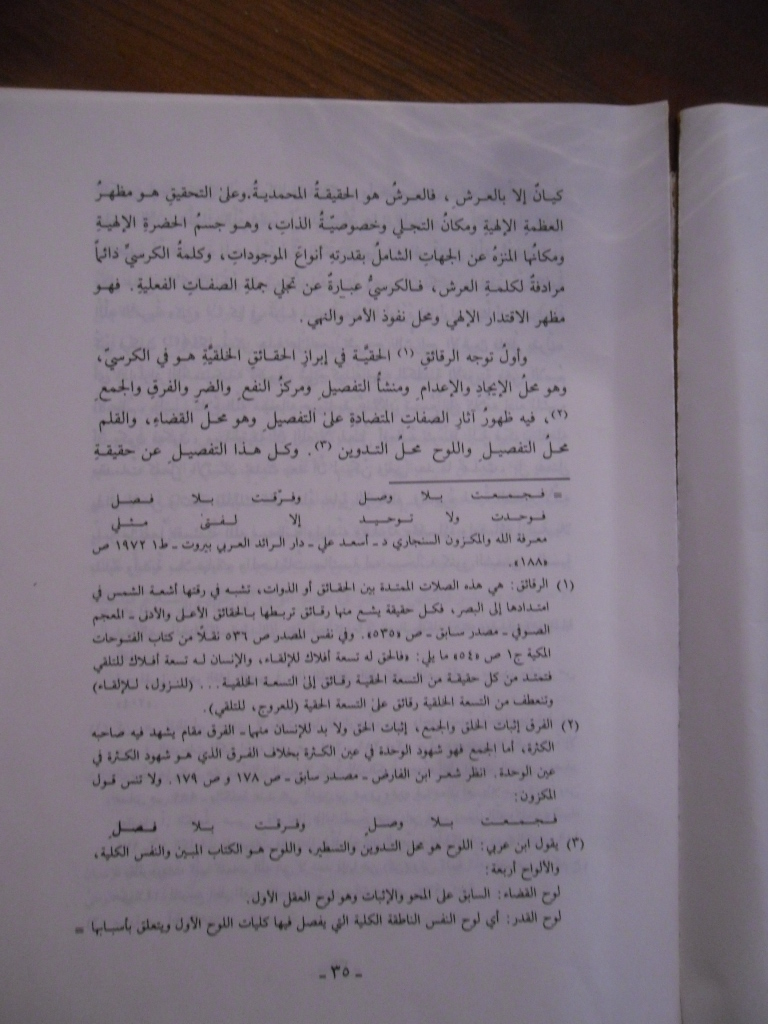 كيانٌ إلا بالعرشِ، فالعرشُ هو الحقيقةُ المحمديةُ.وعلىٰ التحقيقِ هو مظهرُ
العظمةِ الإلهيةِ ومكانُ التجلي وخصوصيّةُ الذاتِ، وهو جسمُ الحضرةِ الإلهيةِ
ومكانُها المنزهُ عن الجهاتِ الشاملُ بقدرتهِ أنواعَ الموجوداتِ، وكلمةُ الكرسيِّ دائماً
مرادفةٌ لكلمةِ العرش، فالكرسيُّ عبارةٌ عن تجلي جملةِ الصفاتِ الفعليةِ. فهو
مظهر الاقتدار الإلهي ومحل نفوذ الأمر والنهي.
وأولُ توجه الرقائقِ (١) الحقيَّة في إبرازِ الحقائقِ الخلقيَّةِ هو في الكرسيِّ،
وهو محلُ الإيجادِ والإعدامِ ومنشأُ التفصيلِ ومركزُ النفعِ والضرِ والفرقِ والجمعِ
(٢)، فيه ظهورُ آثارِ الصفاتِ المتضادةِ علىٰ التفصيلِ وهو محلُ القضاءِ، والقلم
محلُ التفصيلِ واللوح محلُ التدوين (٣). وكل هذا التفصيل عن حقيقةِ
= فجمعت بلا وصل وفرّقت بلا فصل
فوحدت ولا توحيد إلا لفتىٰ مثلي
معرفة الله والمكزون السنجاري د ـ أسعد علي ـ دار الرائد العربي بيروت ـ ط١ ١٩٧٢ ص
«١٨٨».
(١) الرقائق: هي هذه الصلات الممتدة بين الحقائق أو الذوات، تشبه في رقتها أشعة الشمس في
امتدادها إلى البصر، فكل حقيقة يشع منها رقائق تربطها بالحقائق الأعلى والأدنى ـ المعجم
الصوفي ـ مصدر سابق ـ ص «٥٣٥». وفي نفس المصدر ص ٥٣٦ نقلًا من كتاب الفتوحات
المكية ج١ ص «٥٤» ما يلي: «فالحق له تسعة أفلاك للإلقاء، والإنسان له تسعة أفلاك للتلقي
فتمتد من كل حقيقة من التسعة الحقية رقائق إلى التسعة الخلقية... (للنزول، للإلقاء)
وتنعطف من التسعة الخلقية رقائق على التسعة الحقية (للعروج، للتلقي).
(٢) الفرق إثبات الخلق والجمع، إثبات الحق ولا بد للإنسان منهما ـ الفرق مقام يشهد فيه صاحبه
الكثرة، أما الجمع فهو شهود الوحدة في عين الكثرة بخلاف الفرق الذي هو شهود الكثرة في
عين الوحدة. انظر شعر ابن الفارض ـ مصدر سابق ـ ص ١٧٨ و ص ١٧٩. ولا تنس قول
المكزون:
فجمعت بلا وصلٍ وفرقت بلا فصلٍ
(٣) يقول ابن عربي: اللوح هو محل التدوين والتسطير، واللوح هو الكتاب المبين والنفس الكلية،
والألواح أربعة:
لوح القضاء: السابق على المحو والإثبات وهو لوح العقل الأول.
لوح القدر: أي لوح النفس الناطقة الكلية التي يفصل فيها كليات اللوح الأول ويتعلق بأسبابها =
ـ ٣٥ ـ